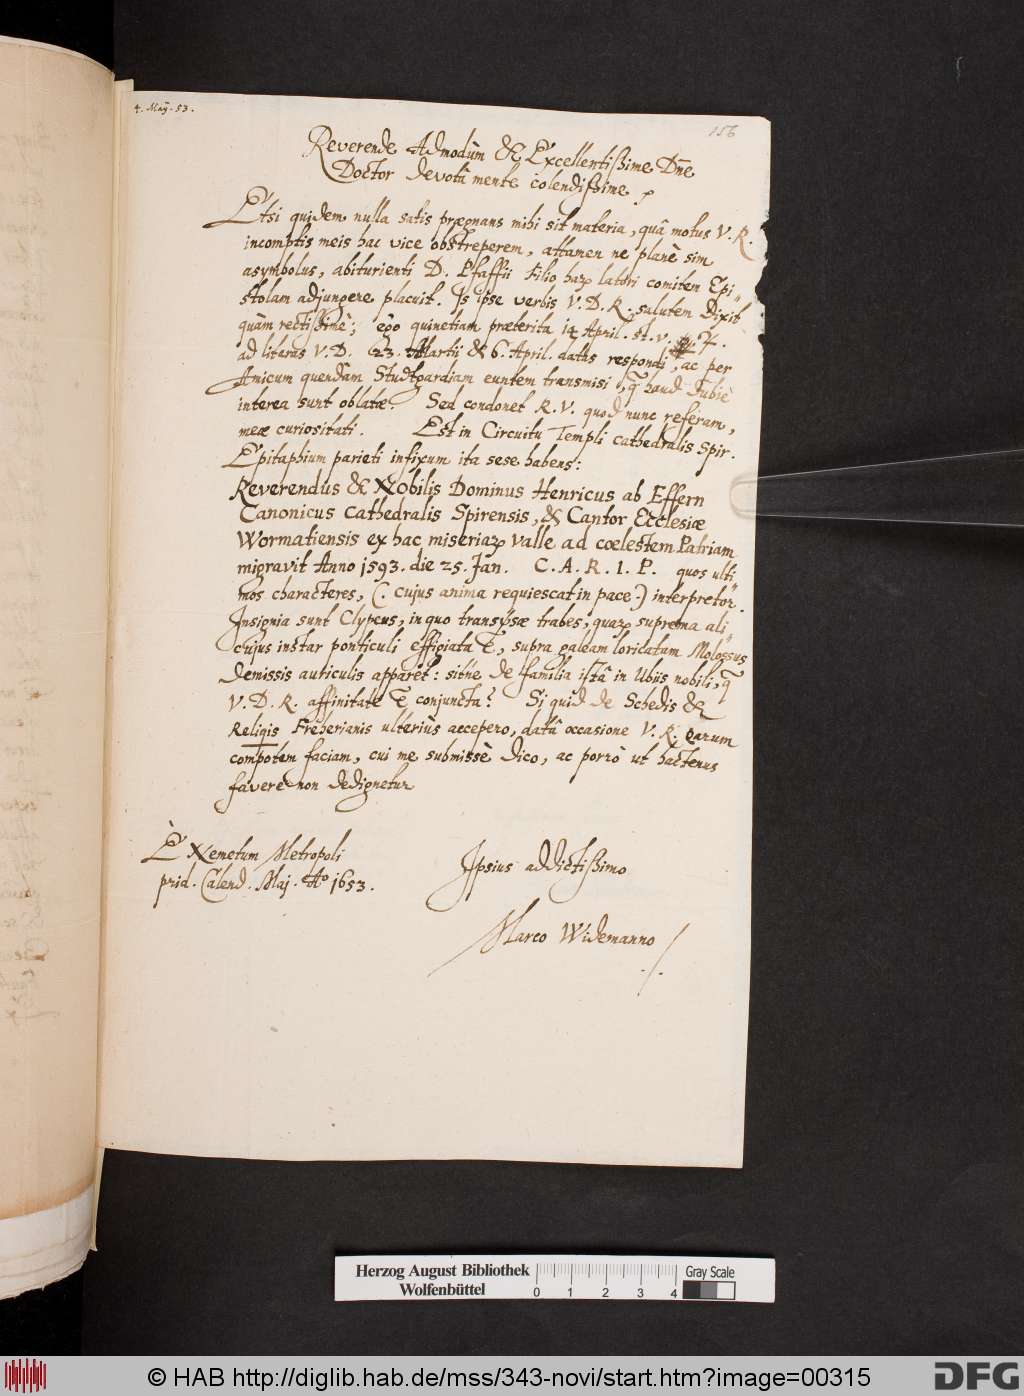 4. Maÿ. 53.
156
Reverende Admodùm & Excellentißime Dn̄e
Doctor devotâ mente colendißime
Etsi quidem nulla satis prægnans mihi sit materia, quâ motus V. R.
incomptis meis hac vice obstreperem, attamen ne planè sim
asymbolus, abiturienti D. Pfaffii Filio harꝝ latori comitem Epi„
stolam adjungere placuit. Is ipse verbis V. D. R. salutem dixit
quàm rectißimè; ego quinetiam præterita 14 April. st. v.
ad literas V. D. 23. Martii & 6. April. datas respondi, ac per
Amicum quendam Studtgardiam euntem transmisi, q̃ haud dubiè
interea sunt oblatæ. Sed condonet R. V. quod nunc referam,
meæ curiositati. Est in Circuitu Templi cathedralis Spir.
Epitaphium parieti infixum ita sese habens:
Reverendus & Nobilis Dominus Henricus ab Effern
Canonicus Cathedralis Spirensis, & Cantor Ecclesiæ
Wormatiensis ex hac miseriaꝝ valle ad cœlestem Patriam
migravit Anno 1593. die 25. Jan. C. A. R. I. P. quos ulti„
mos characteres, (. cujus anima requiescat in pace.) interpretor.
Insignia sunt Clypeus, in quo transvsæ trabes, quaꝝ suprema ali„
cujus instar ponticuli effigiata ē, supra galeam loricatam Molossus
demissis auriculis apparet: sitne de familia istâ in Ubiis nobili, q̃
V. D. R. affinitate ē conjuncta? Si quid de Schedis &
Religis Freherianis ulteriùs accepero, datâ occasione V. R. earum
compotem faciam, cui me submissè dico, ac porrò ut hactenus
favere non dedignetur
È Nemetum Metropoli
prid. Calend. Maj. Aº 1653.
Ipsius addictißimo
Marco Widemanno
Herzog August Bibliothek
Wolfenbüttel
0 1 2 3 4
Gray Scale
© HAB http://diglib.hab.de/mss/343-novi/start.htm?image=00315
DFG